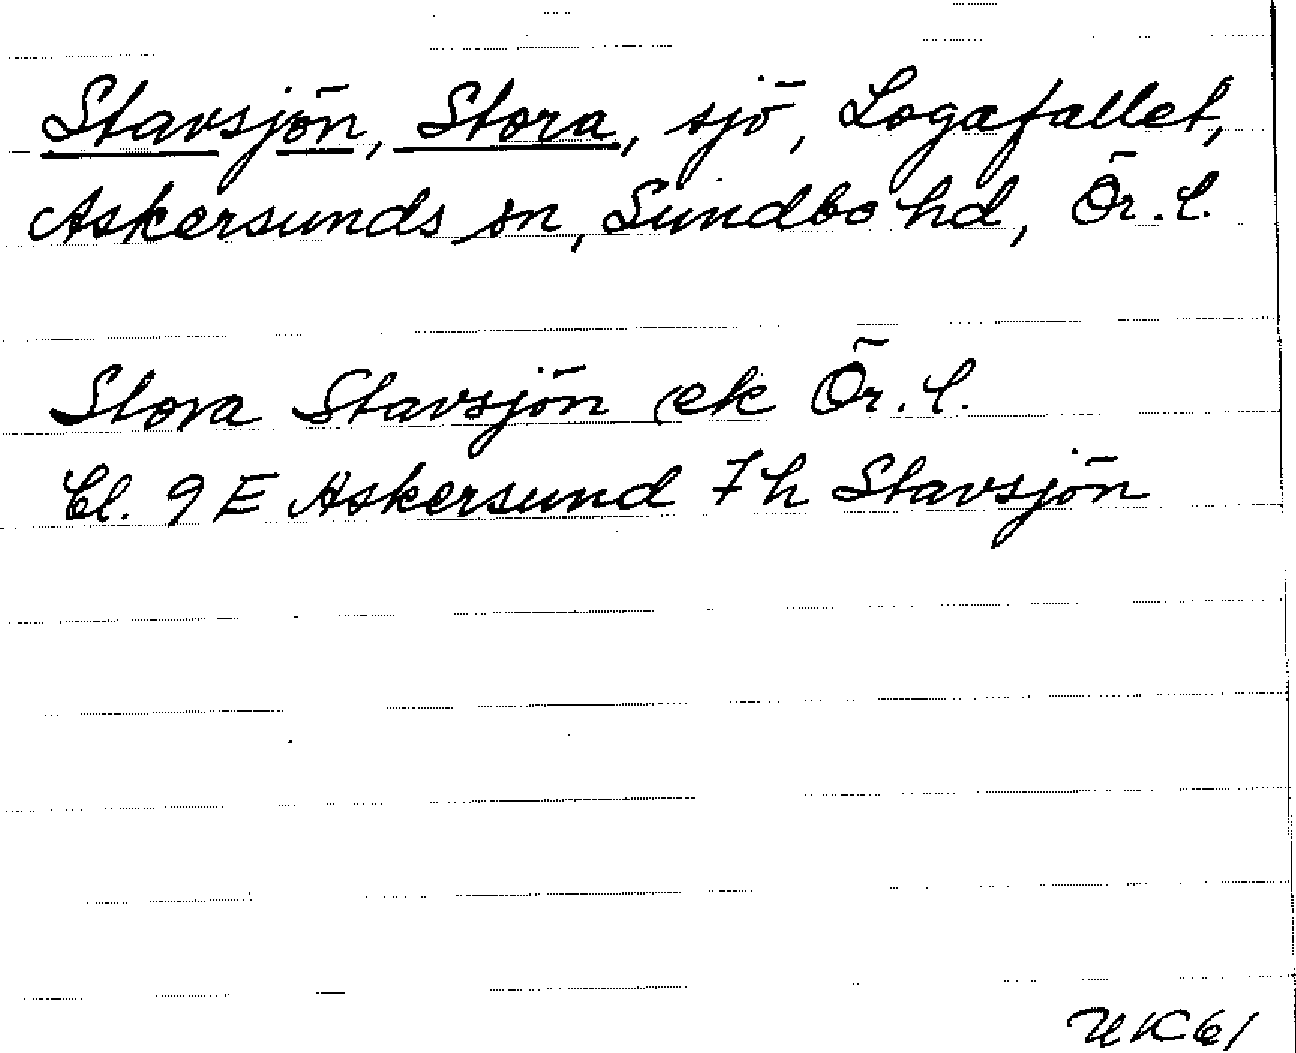 Stavsjön, Stora, sjö, Logafallet,
Askersunds sn, Sundbo hd, Ör. l.
Stora Stavsjön ek Ör. l.
Bl. 9 E Askersund 7 h Stavsjön
UK61